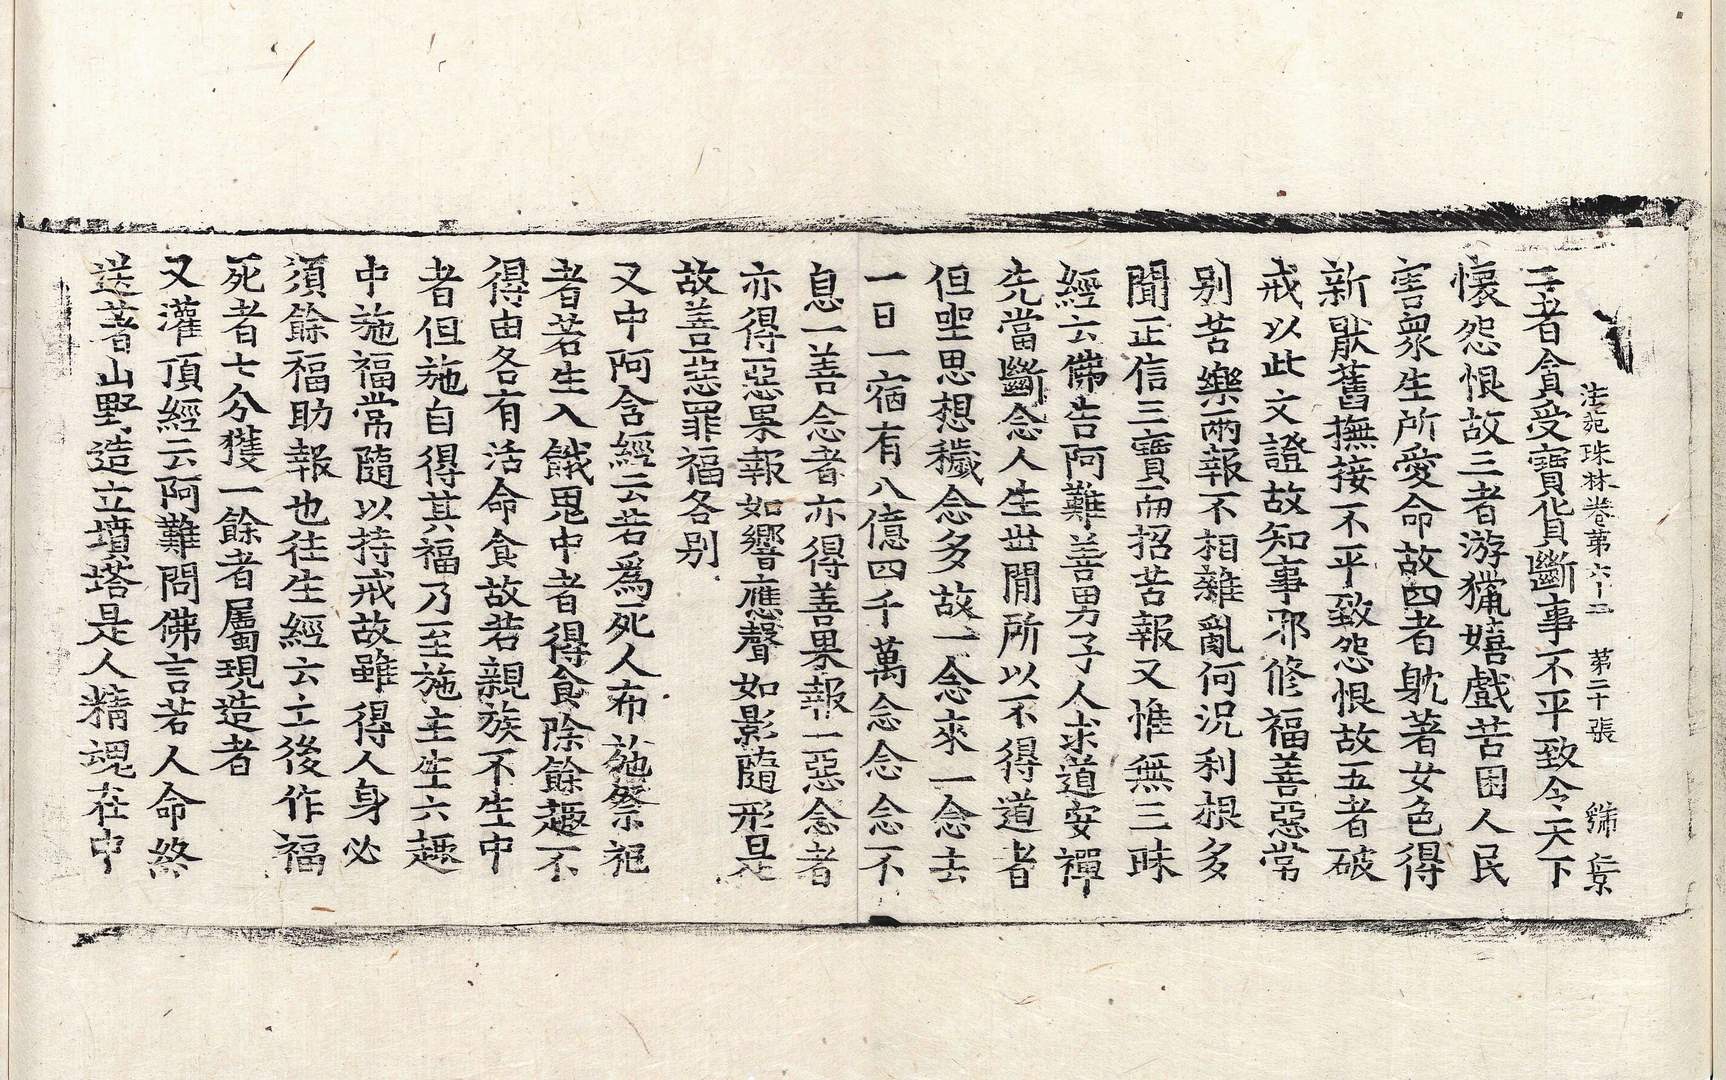 法苑珠林卷第六十二 第二十張 綈
二者貪受寶貨斷事不平致令天下
懷怨恨故三者游獵嬉戲苦困人民
害衆生所愛命故四者躭著女色得
新厭舊撫接不平致怨恨故五者破
戒以此文證故知事邪修福善惡常
别苦樂兩報不相雜亂何況利根多
聞正信三寶而招苦報又惟無三昧
經云佛告阿難善男子人求道安禪
先當斷念人生世閒所以不得道者
但坐思想穢念多故一念來一念去
一日一宿有八億四千萬念念念不
息一善念者亦得善果報一惡念者
亦得惡果報如響應聲如影隨形是
故善惡罪福各别
又中阿含經云若爲死人布施祭祀
者若生入餓鬼中者得食除餘趣不
得由各有活命食故若親族不生中
者但施自得其福乃至施主生六趣
中施福常隨以持戒故雖得人身必
須餘福助報也往生經云亡後作福
死者七分獲一餘者屬現造者
又灌頂經云阿難問佛言若人命終
送著山野造立墳塔是人精魂在中